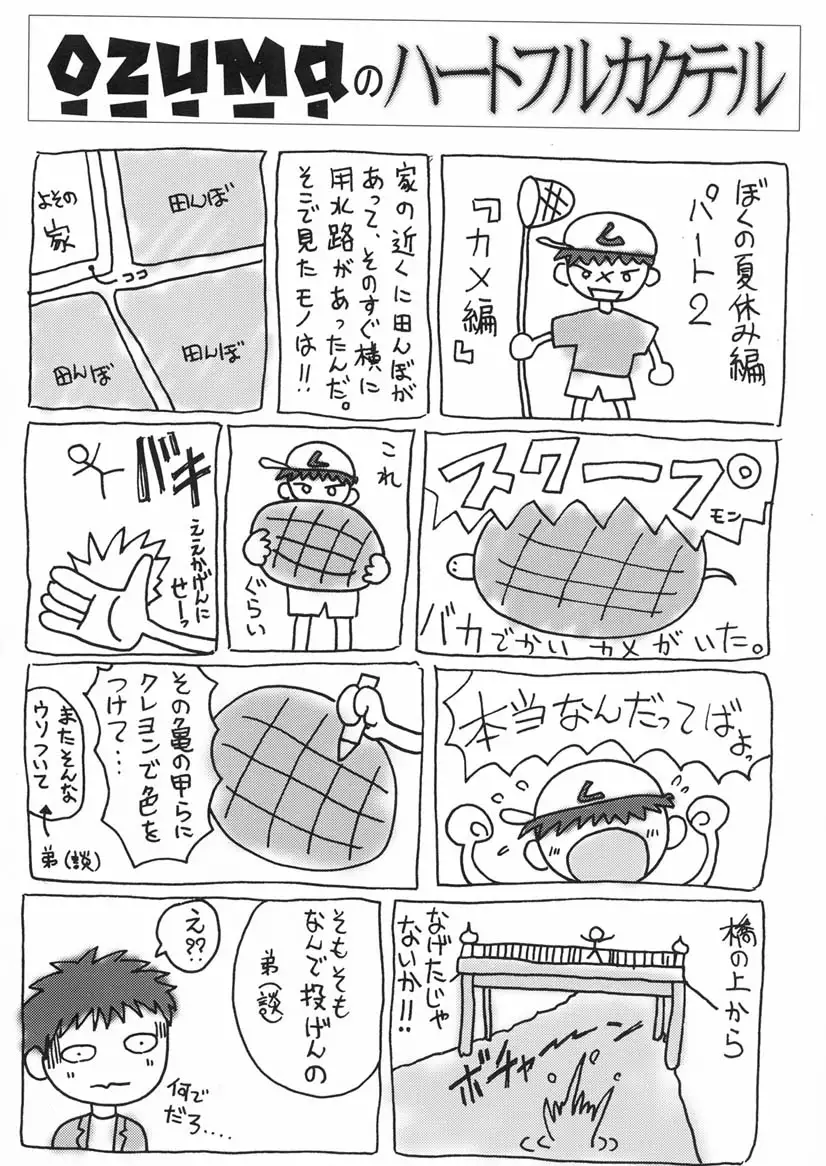 OZUMaのハートフルカクテル
ぼくの夏休み編
パート2
『カメ編』
家の近くに田んぼが
あって、そのすぐ横に
用水路があったんだ。
そこで見たモノは!!
田んぼ
よその
家
ココ
田んぼ
田んぼ
スクープ
モン
バカでかいカメがいた。
これ
ぐらい
バキ
ええかげんに
せーっ
本当なんだってばよっ
その亀の甲らに
クレヨンで色を
つけて・・・
またそんな
ウソついて
弟(談)
橋の上から
なげたじゃ
ないか!!
ボチャーー
そもそも
なんで投げんの
弟(談)
え??
何で
だろ....